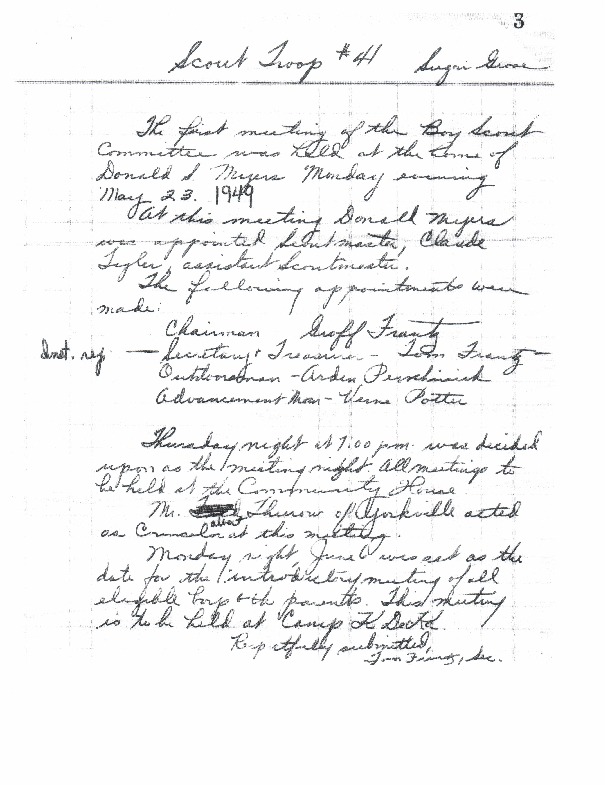 3
Scout Troop #41 Sugar Grove
The first meeting of the Boy Scout
Committee was held at the home of
Donald S Myers Monday evening
May 23. 1949
At this meeting Donald Myers
was appointed Scoutmaster, Claude
assistant Scoutmaster.
The following appointments were
made:
Chairman Groff Frantz
Inst. rep — Secretary & Treasurer - Tom Frantz
Outdoorsman - Arden
Advancement Man - Verne Potter
Thursday night at 7:00 p.m. was decided
upon as the meeting night. All meetings to
be held at the Community House
Mr. Albert Thurow of Yorkville acted
as Counselor at this meeting.
Monday night, June 6 was set as the
date for the introductory meeting of all
eligible boys & the parents. This meeting
is to be held at Camp
Respectfully submitted,
Tom Frantz, Sec.